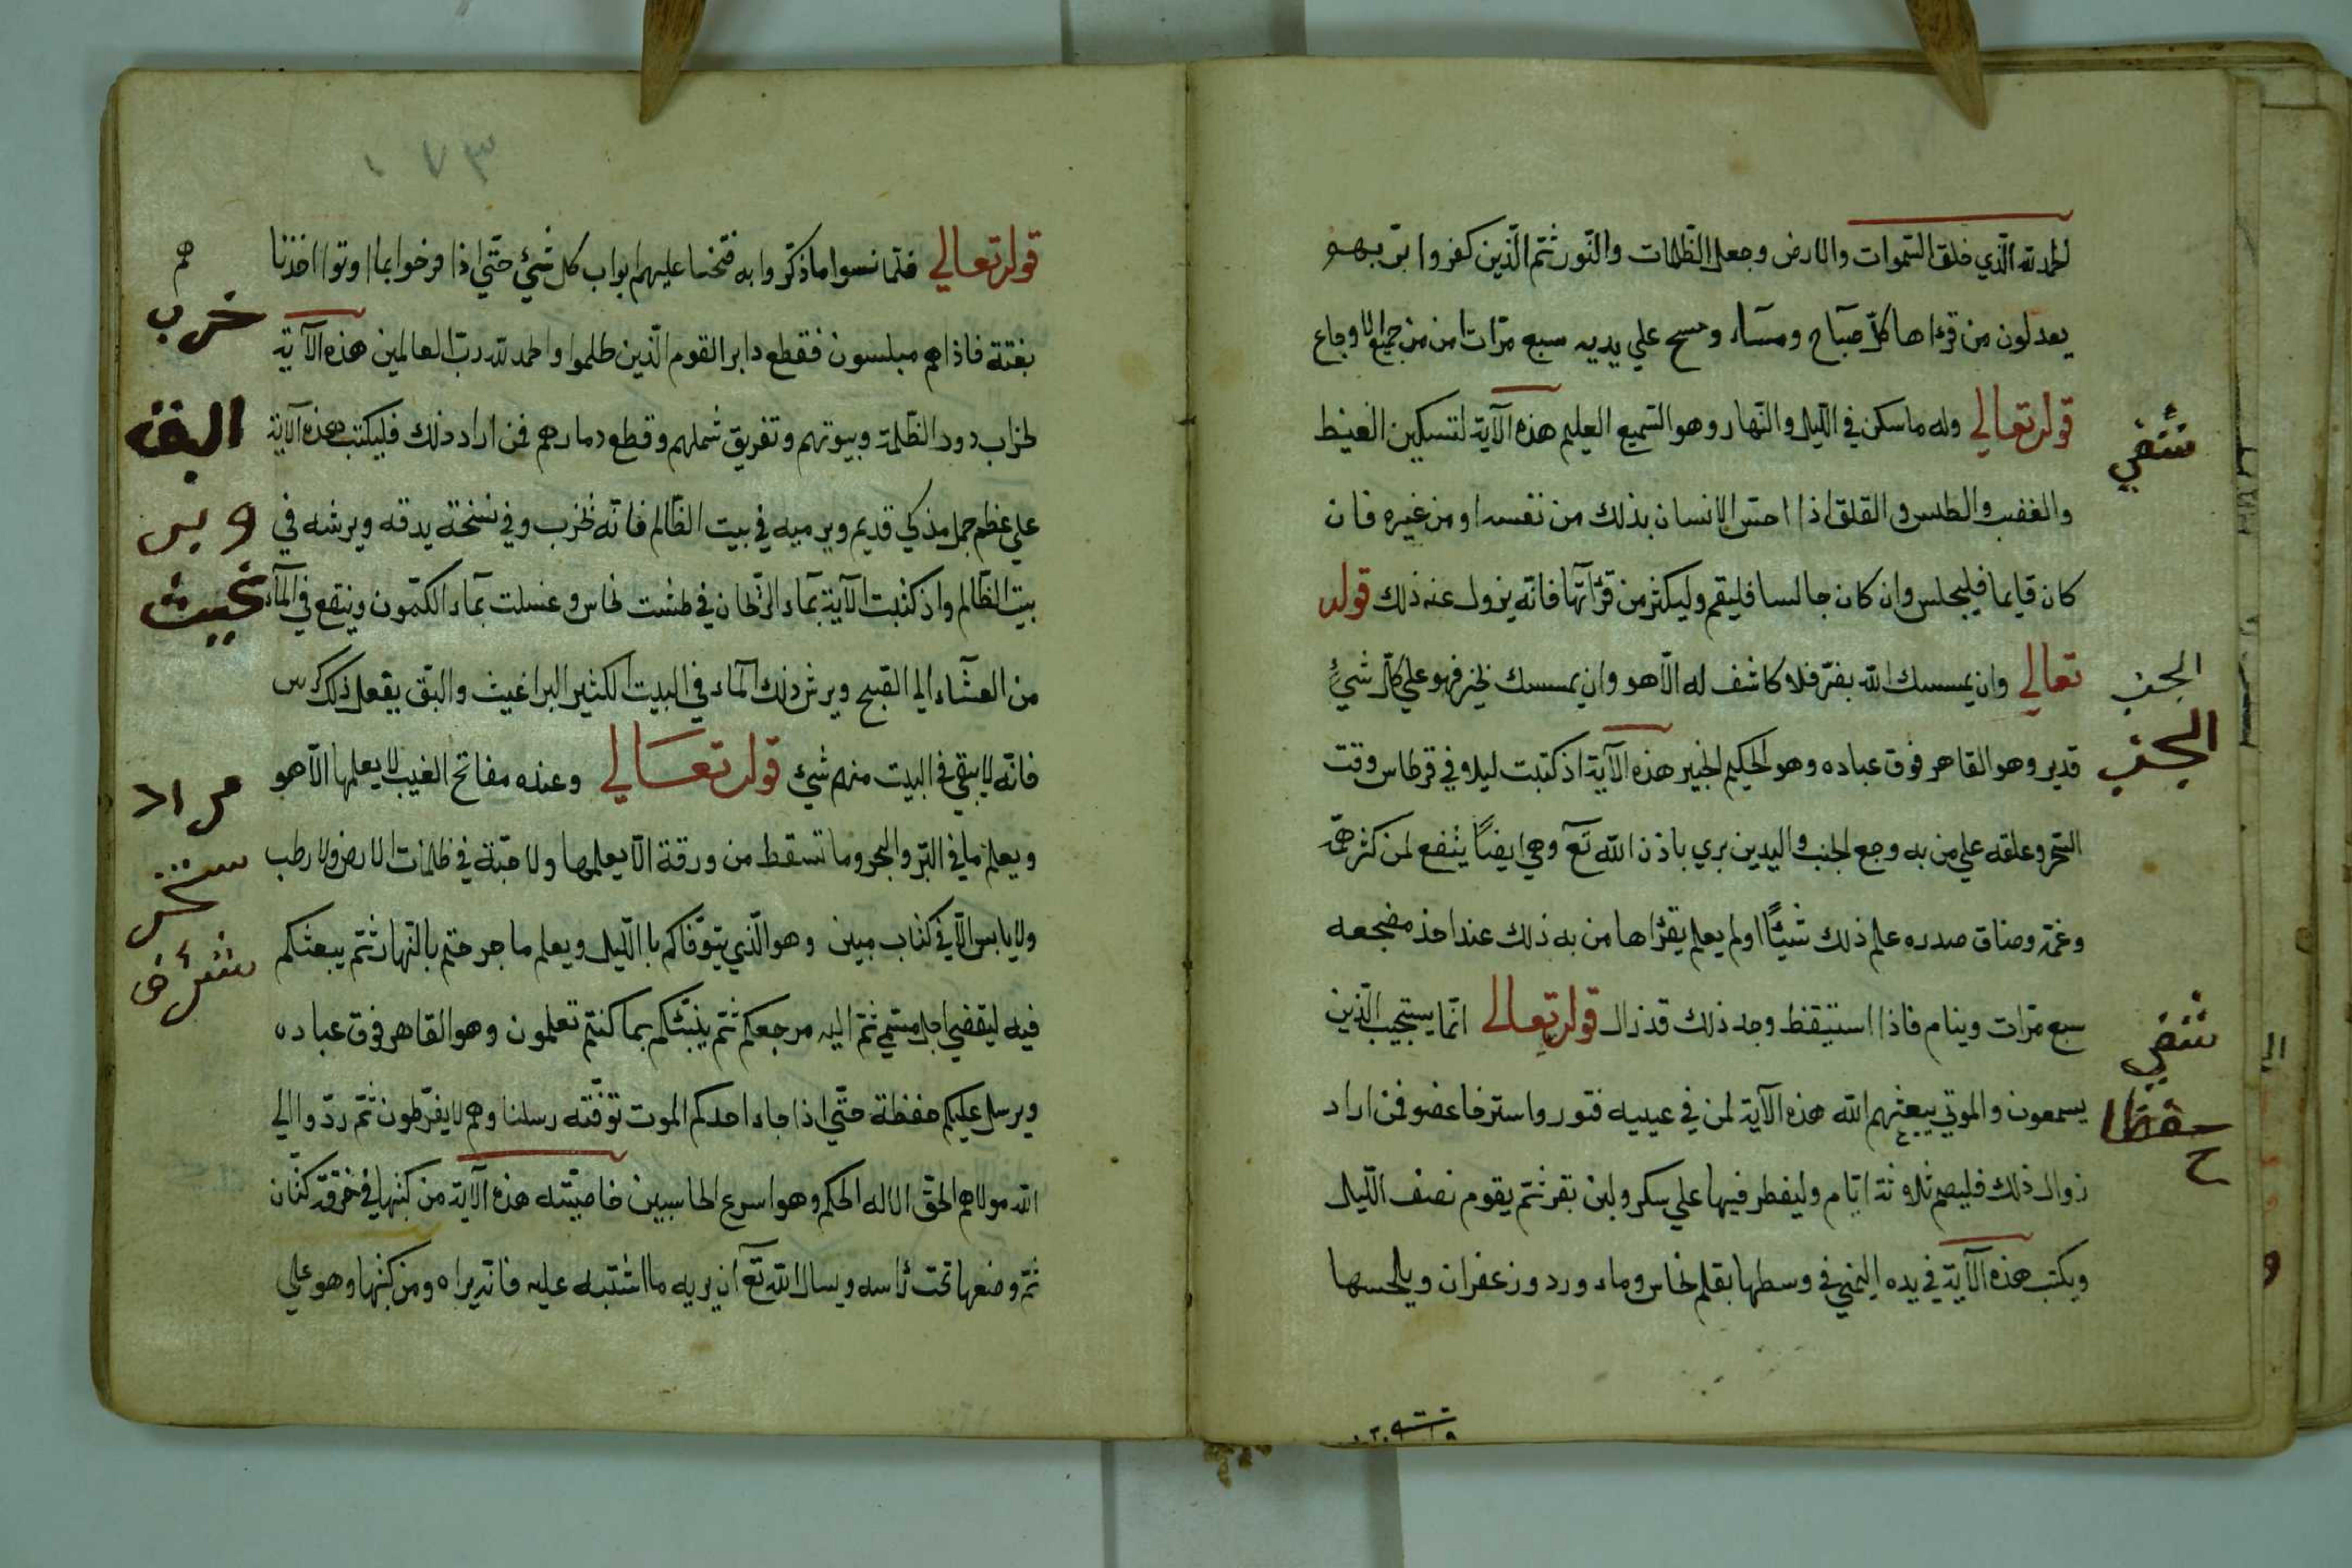 الحمد لله الّذي خلق السّموات والارض وجعل الظّلمات والنّور ثمّ الّذين كفروا بربّهم
يعدلون من قرءاها كلّ صباح ومسآء ومسح علي يديه سبع مرّات امن من جميع الاوجاع
قوله تعالي وله ما سكن في اللّيل والنّهار وهو السّميع العليم هذه الآية لتسكين الغيظ
والغضب والطلس والقلق اذا احسّ الانسان بذلك من نفسه او من غيره فان
كان قايما فليجلس وان كان جالسا فليقم وليكثر من قرآتها فانّه يزول عنه ذلك قوله
تعالي وان يمسسك الله بضرّ فلا كاشف له الّا هو وان يمسسك بخير فهو علي كلّ شيء
قدير وهو القاهر فوق عباده وهو الحكيم الخبير هذه الآية اذ كتبت ليلا في قرطاس وقت
السّحر وعلقه علي من به وجع الجنب واليدين بري باذن الله تعآ وهي ايضاً ينفع لمن كثر همّه
وغمّه وضاق صدره علم ذلك شيئًا اولم يعلم يقرءاها من به ذلك عند اخذ مضجعه
سبع مرّات وينام فاذا استيقظ وجد ذلك قد زال قوله تعالي انّما يستجيب الّذين
يسمعون والموتي يبعثهم الله هذه الآية لمن في عينيه فتور واسترخا عضو فمن اراد
زوال ذلك فليصم ثلاثة ايّام وليفطر فيها علي سكر ولبن بقر ثمّ يقوم نصف اللّيل
ويكتب هذه الآية في يده اليمني في وسطها بقلم نحاس وماء ورد وزعفران ويلحسها
شفي
الجنب
الجنب
شفي
قوله تعالي فلمّا نسوا ما ذكّروا به فتحنا عليهم ابواب كل شيء حتّي اذا فرحوا بما اوتوا اخذنا
هم
بغتة فاذا هم مبلسون فقطع دابر القوم الّذين ظلموا والحمد لله ربّ العالمين هذه الآية
لخراب دور الظّلمة وبيوتهم وتفريق شملهم وقطع دمارهم فمن اراد ذلك فليكتب هذه الآية
علي عظم جمل مذكي قديم ويرميه في بيت الظّالم فانّه يخرب وفي نسخة يدقه ويرشه في
بيت الظّالم واذ كتبت الآية بمآء الرّمّان في طشت نحاس وغسلت بمآء الكمّون وينقع في المآء
من العشآء الي الصّبح ويرش ذلك المآء في البيت الكثير البراغيث والبق يفعل ذلك
فانّه لا يبقي في البيت منهم شيء قوله تعالي وعنده مفاتح الغيب لا يعلمها الّا هو
ويعلم ما في البّر والبحر وما تسقط من ورقة الّا يعلمها ولا حبّة في ظلمات الارض ولا رطب
ولا يابس الّا في كتاب مبين وهو الّذي يتوفّاكم باللّيل ويعلم ما جرحتم بالنّهار ثمّ يبعثكم
فيه ليقضي اجل مسمّي ثمّ اليه مرجعكم ثمّ ينبّئكم بما كنتم تعملون وهو القاهر فوق عباده
ويرسل عليكم حفظة حتّي اذا جاء احدكم الموت توفّته رسلنا وهم لا يفرّطون ثمّ ردّوا الي
الله مولاهم الحقّ الا له الحكم وهو اسرع الحاسبين خاصيّته هذه الآية من كتبها في خرقة كتّان
ثمّ وضعها تحت رٔاسه ويسال الله تعآ ان يريه ما اشتبه عليه فانّه يراه ومن كتبها وهو علي
خرب
البق
مراد